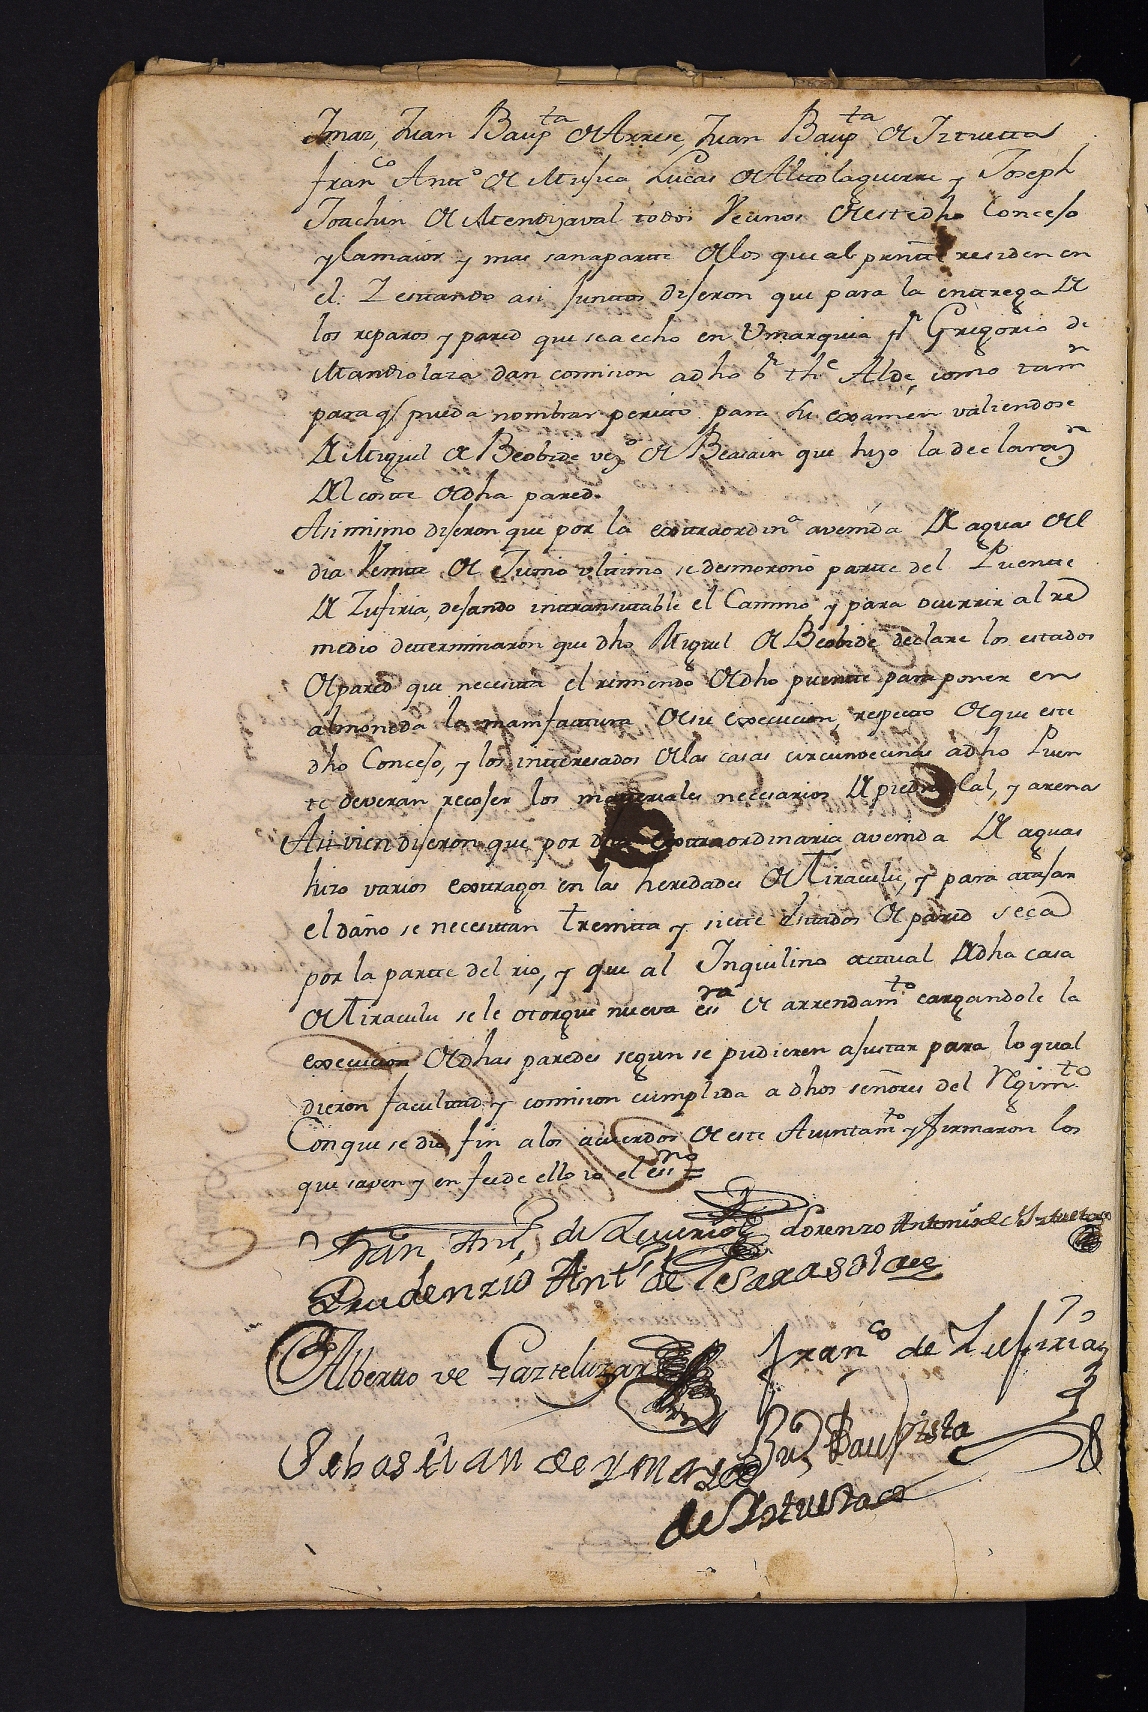 Imaz, Juan Baup.ta de Arrese, Juan Baup.ta de Iztuetta
Fran.co Antt.o de Mujica, Lucas de Altolaguirre y Joseph
Joachin de Mendizaval todos Vecinos de este dho Concejo
y la maior y mas sana partte de los que al prnte residen en
el: Y estando asi Junttos dijeron que para la enttrega de
los reparos y pared que se a echo en Vmarquia p.r Gregorio de
Mandiolaza dan comision a dho s.r the Alde, como tam.n
para q.e pueda nombrar peritto para su examen valiendose
de Miguel de Beobide vez.o de Beasain que hizo la declaraz.n
del costte de dha pared.
Asi mismo dijeron que por la exttraordin.a avenida de aguas del
dia Veintte de Junio vltimo se desmorono partte del Puentte
de Zufiria, dejando inttransitable el Camino y para ocurrir al re
medio detterminaron que dho Miguel de Beobide declare los estados
de pared que necesitta el remiendo de dho puentte para poner en
almoneda la manifacttura de su execucion, respecto de que este
dho Concejo, y los intteresados de las casas circunvecinas a dho Puen
te deveran recojer los materiales necesarios de piedra Cal, y arena
Asi vien dijeron que por dha exttraordinaria avenida de aguas
hizo varios exttragos en las heredades de Tiraculu, y para atajar
el daño se necesittan treintta y siette esttados de pared seca
por la partte del rio, y que al Inquilino acttual de dha casa
de Tiraculu se le otorgue nueva ess.ra de arrendam.to cargandole la
execucion de dhas paredes segun se pudieren ajustar para lo qual
dieron facultad y comision cumplida a dhos señores del Rgim.to
Con que se dio fin a los acuerdos de este Aiuntam.to y firmaron los
que saven y en fee de ello io el ess.no =
Juan Ant.o de Lorenzo Antonio de Iztueta
Prudenzio Ant.o de Lesarasolaee
Albertto de Gazteluzar Fran.co de Zufiria
Sebastian de ymaz Bauptista
de Iztueta